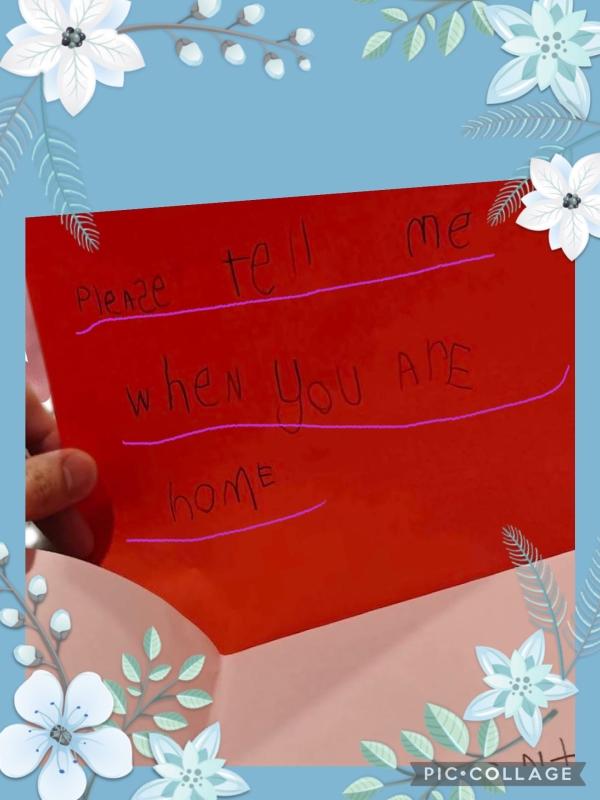 PleAze tell me
wheN you ArE
homE
PIC•COLLAGE